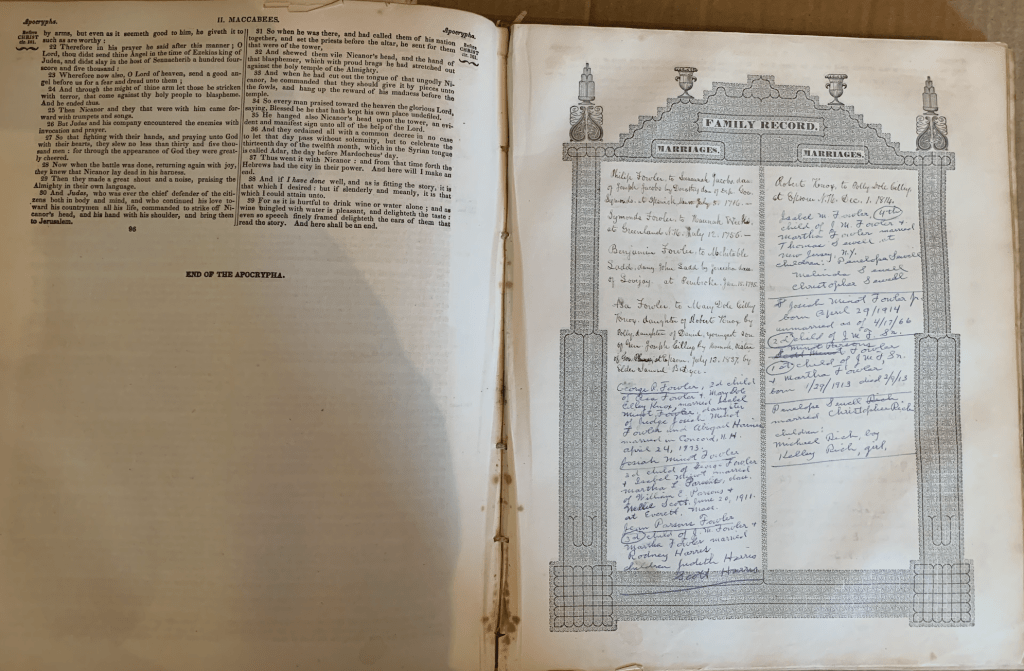 Apocrypha.
II. MACCABEES.
Apocrypha.
Before
CHRIST
cir. 161.
by arms, but even as it seemeth good to him, he giveth it to
such as are worthy:
22 Therefore in his prayer he said after this manner; O
Lord, thou didst send thine Angel in the time of Ezekias king of
Judea, and didst slay in the host of Sennacherib a hundred four-
score and five thousand:
23 Wherefore now also, O Lord of heaven, send a good an-
gel before us for a fear and dread unto them;
24 And through the might of thine arm let those be stricken
with terror, that come against thy holy people to blaspheme.
And he ended thus.
25 Then Nicanor and they that were with him came for-
ward with trumpets and songs.
26 But Judas and his company encountered the enemies with
invocation and prayer.
27 So that fighting with their hands, and praying unto God
with their hearts, they slew no less than thirty and five thou-
sand men: for through the appearance of God they were great-
ly cheered.
28 Now when the battle was done, returning again with joy,
they knew that Nicanor lay dead in his harness.
29 Then they made a great shout and a noise, praising the
Almighty in their own language.
30 And Judas, who was ever the chief defender of the citi-
zens both in body and mind, and who continued his love to-
ward his countrymen all his life, commanded to strike off Ni-
canor's head, and his hand with his shoulder, and bring them
to Jerusalem.
96
31 So when he was there, and had called them of his nation
together, and set the priests before the altar, he sent for them
that were of the tower,
32 And shewed them vile Nicanor's head, and the hand of
that blasphemer, which with proud brags he had stretched out
against the holy temple of the Almighty.
33 And when he had cut out the tongue of that ungodly Ni-
canor, he commanded that they should give it by pieces unto
the fowls, and hang up the reward of his madness before the
temple.
34 So every man praised toward the heaven the glorious Lord,
saying, Blessed be he that hath kept his own place undefiled.
35 He hanged also Nicanor's head upon the tower, an evi-
dent and manifest sign unto all of the help of the Lord.
36 And they ordained all with a common decree in no case
to let that day pass without solemnity, but to celebrate the
thirteenth day of the twelfth month, which in the Syrian tongue
is called Adar, the day before Mardocheus' day.
37 Thus went it with Nicanor: and from that time forth the
Hebrews had the city in their power. And here will I make an
end.
38 And if I have done well, and as is fitting the story, it is
that which I desired: but if slenderly and meanly, it is that
which I could attain unto.
39 For as it is hurtful to drink wine or water alone; and as
wine mingled with water is pleasant, and delighteth the taste:
even so speech finely framed delighteth the ears of them that
read the story. And here shall be an end.
END OF THE APOCRYPHA.
FAMILY RECORD.
MARRIAGES.
Philip Fowler to Susannah Jacobs dau.
of Joseph Jacobs by dau. of Cap.
Symonds at Ipswich July 5. 1716.
Symonds Fowler to Hannah Weeks
at Greenland N.H. July 12. 1756.
Benjamin Fowler to Mehitable
Ladd, dau. John Ladd by dau.
of Lovejoy. at Pembroke Jan.
Asa Fowler to Mary Dole Cilley
Knox, daughter of Robert Knox by
Polly, daughter of Daniel, youngest son
of Gen. Joseph Cilley by Hannah, sister
of Gov. at Epsom. July 13. 1837. by
Elder Samuel
George R. Fowler, 2d child
of Asa Fowler + Mary Dole
Cilley Knox, married Isabel
Minot Fowler, daughter
of Judge Josiah Minot
Fowler and Abigail Haines
married in Concord, N.H.
April 24, 1873.
Josiah Minot Fowler
2d child of George Fowler
+ Isabel Minot married
Martha E. Parsons, dau.
of William E. Parsons +
Nellie Scott. June 20, 1911.
at Everett, Mass.
Jean Parsons Fowler
3d child of J.M. Fowler +
Martha Fowler married
Rodney Harris
children Judith Harris
Scott Harris
MARRIAGES.
Robert Knox, to Polly Dole Cilley,
at Epsom N.H. Dec. 1. 1814.
Isabel M. Fowler, 4th
child of J.M. Fowler +
Martha Fowler married
Thomas Sewell at
New Jersey. N.Y.
children: Penelope Sewell
Melinda Sewell
Christopher Sewell
Josiah Minot Fowler Jr.
born April 29/1914
unmarried as of 4/12/66
2d child of J.M.F. Sr.
Minot Parsons
Fowler
1st child of J.M.F. Sr.
+ Martha Fowler
born 1/29/1913 died 2/9/13
Penelope Sewell
married Christopher Rich
children:
Michael Rich, boy
Kelley Rich, girl,